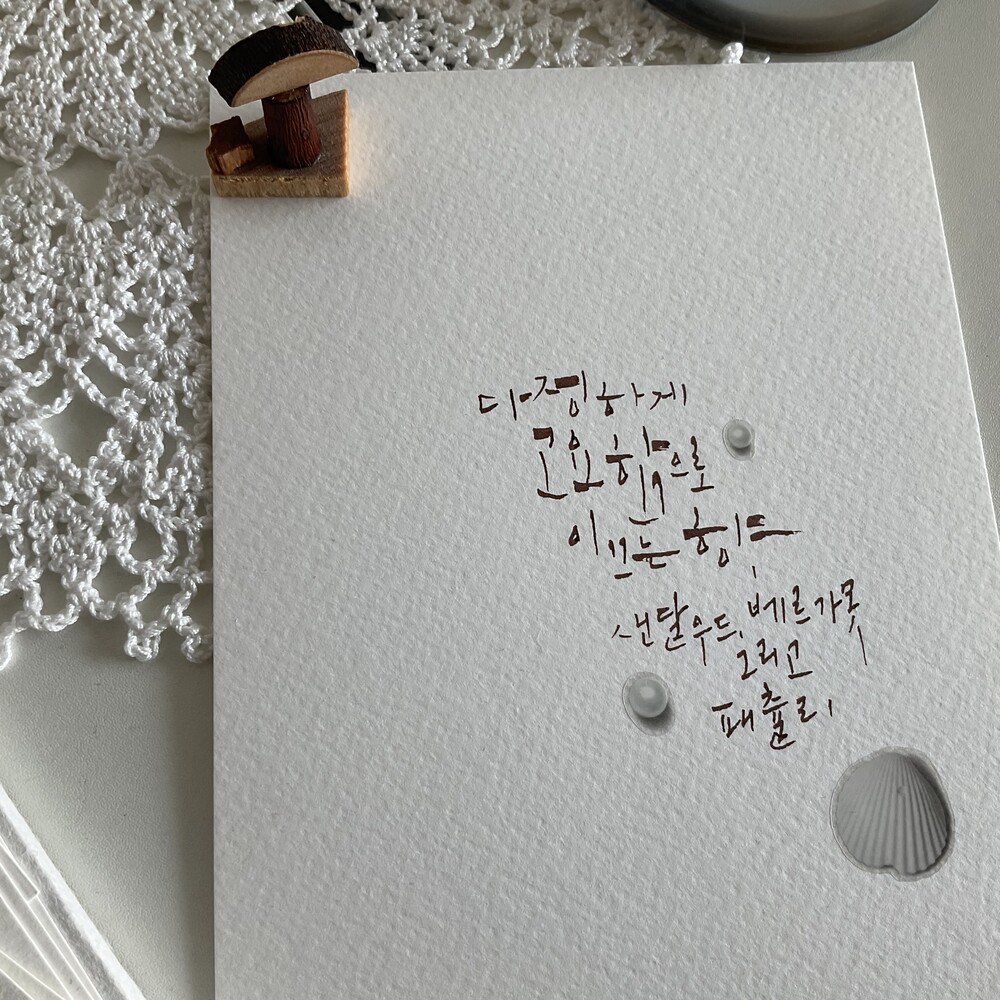 다정하게
고요함으로
이끄는 향기,
샌달우드, 베르가못
그리고
패츌리